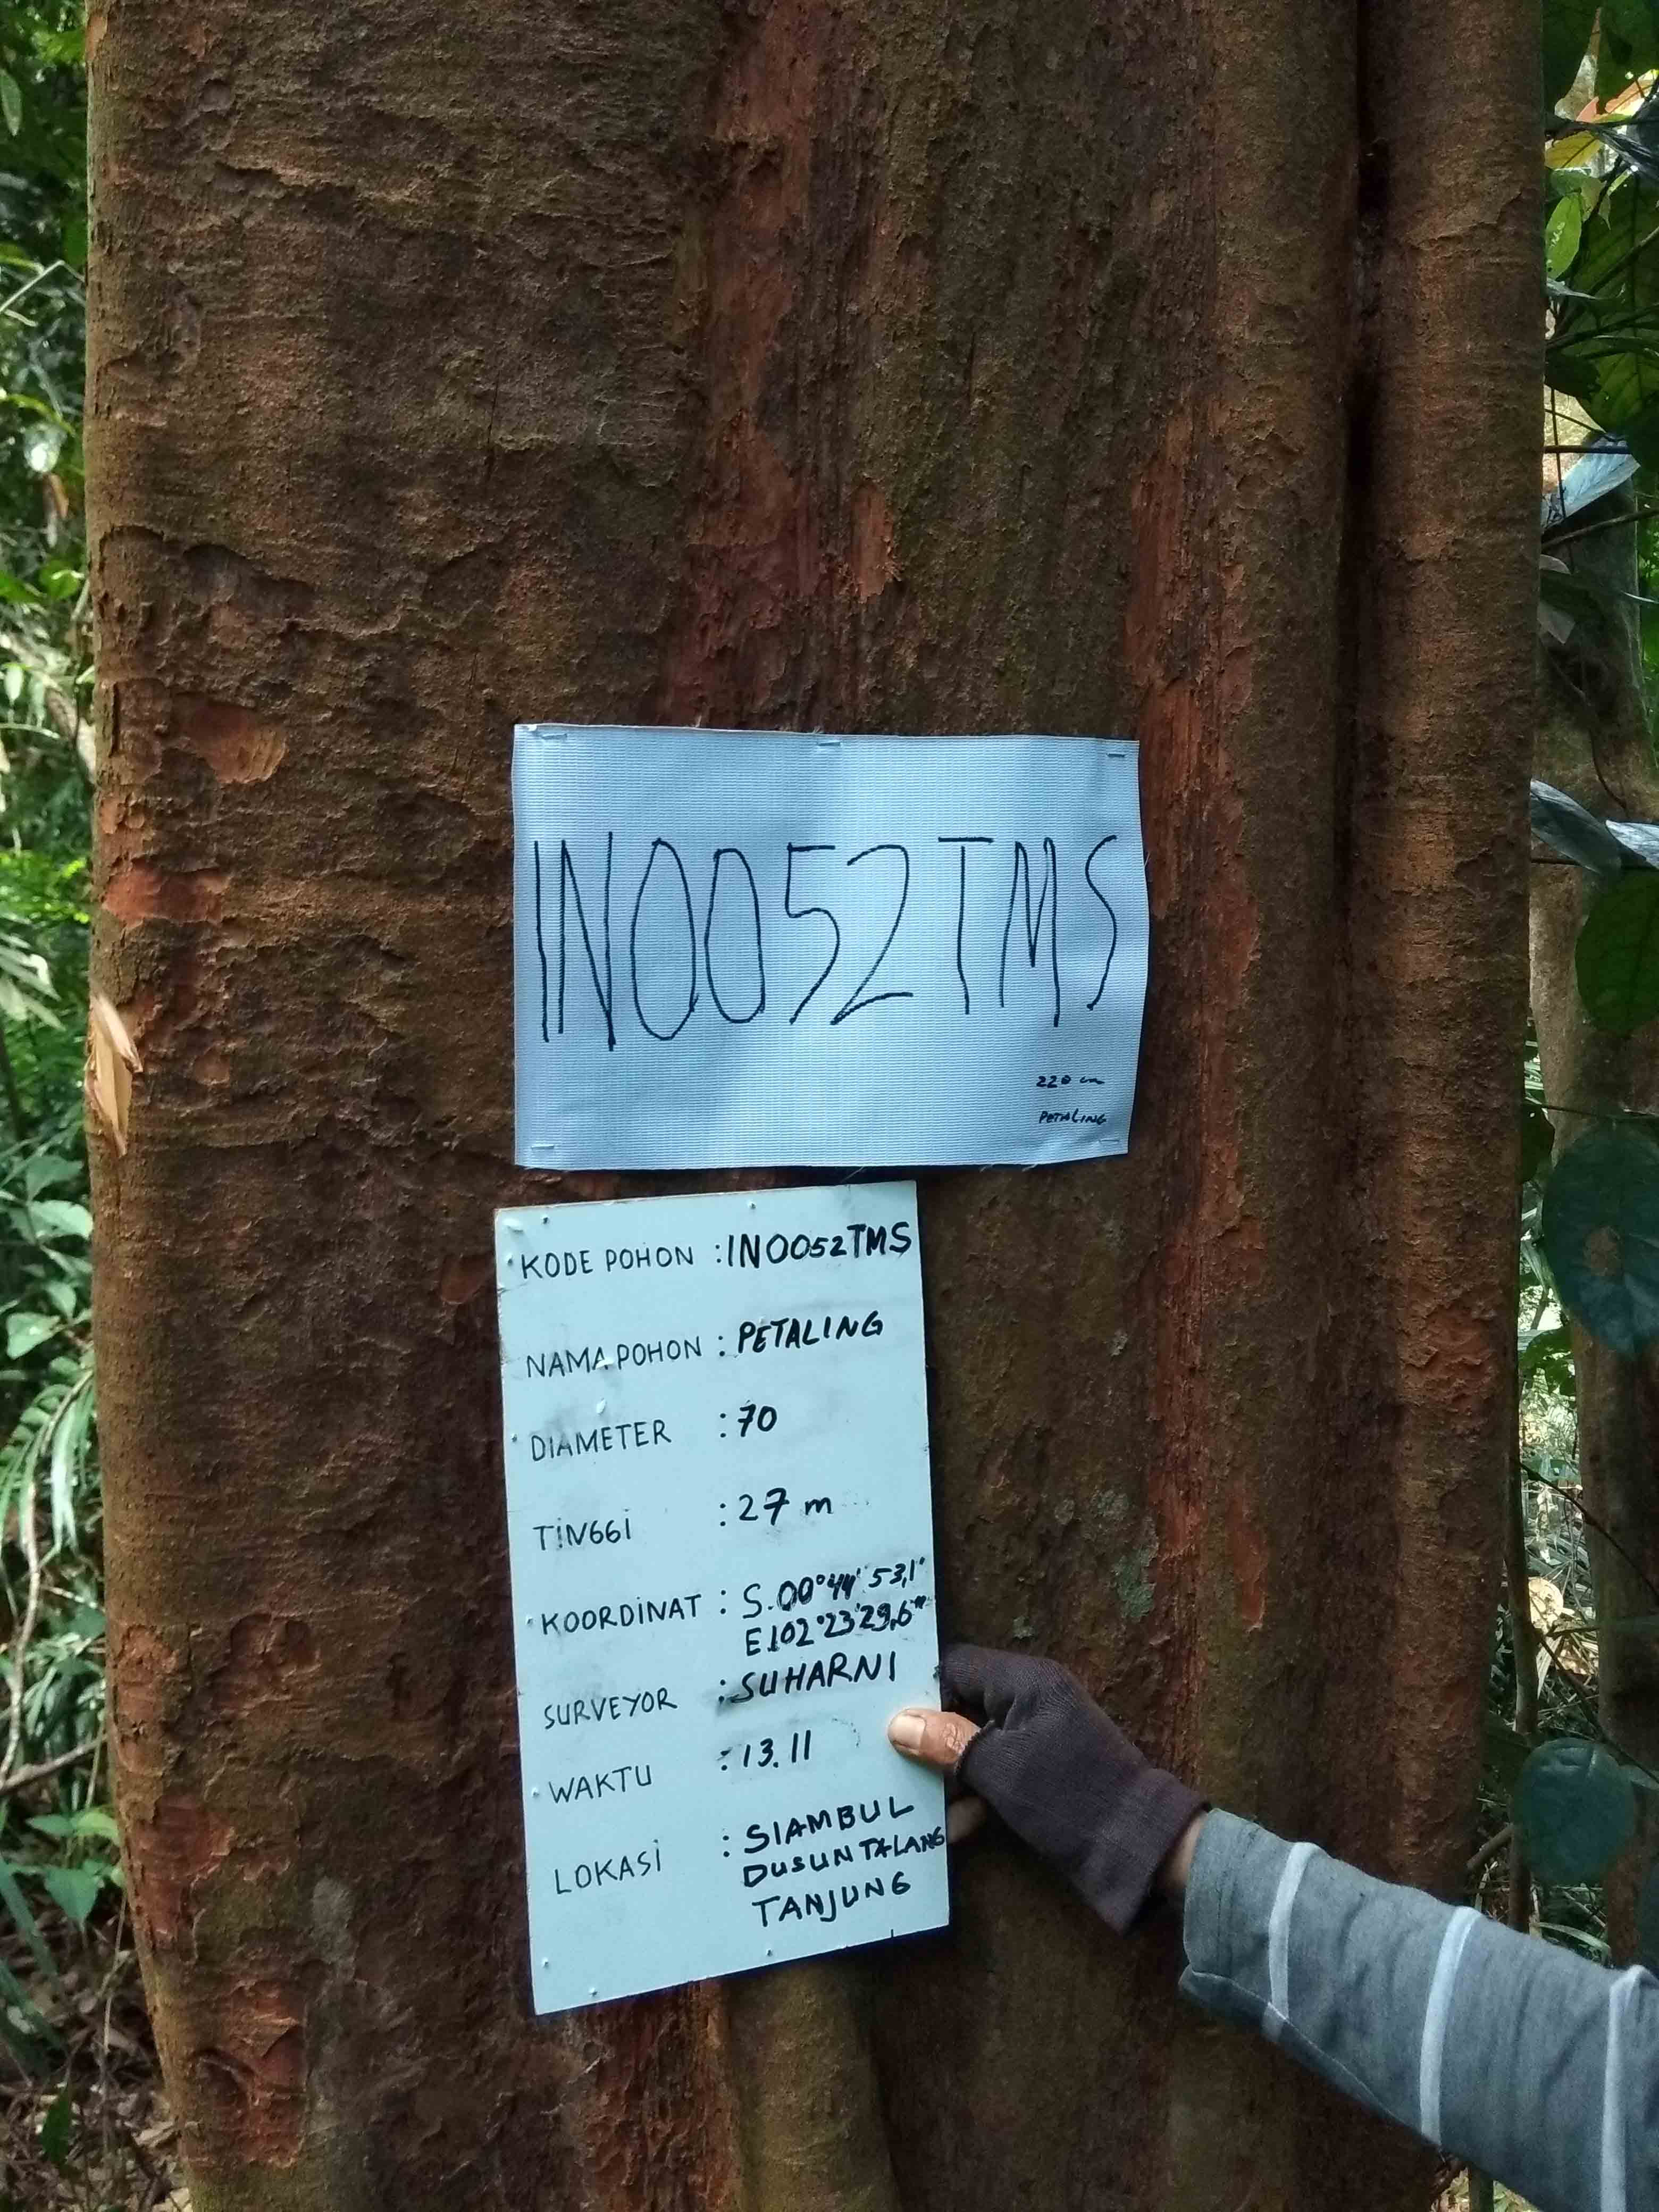 IN0052TMS
220 cm
PETALING
KODE POHON : IN0052TMS
NAMA POHON : PETALING
DIAMETER : 70
TINGGI : 27 m
KOORDINAT : S.00°44' 53,1"
E.102°23'29,6"
SURVEYOR : SUHARNI
WAKTU : 13.11
LOKASI : SIAMBUL
DUSUN TALANG
TANJUNG